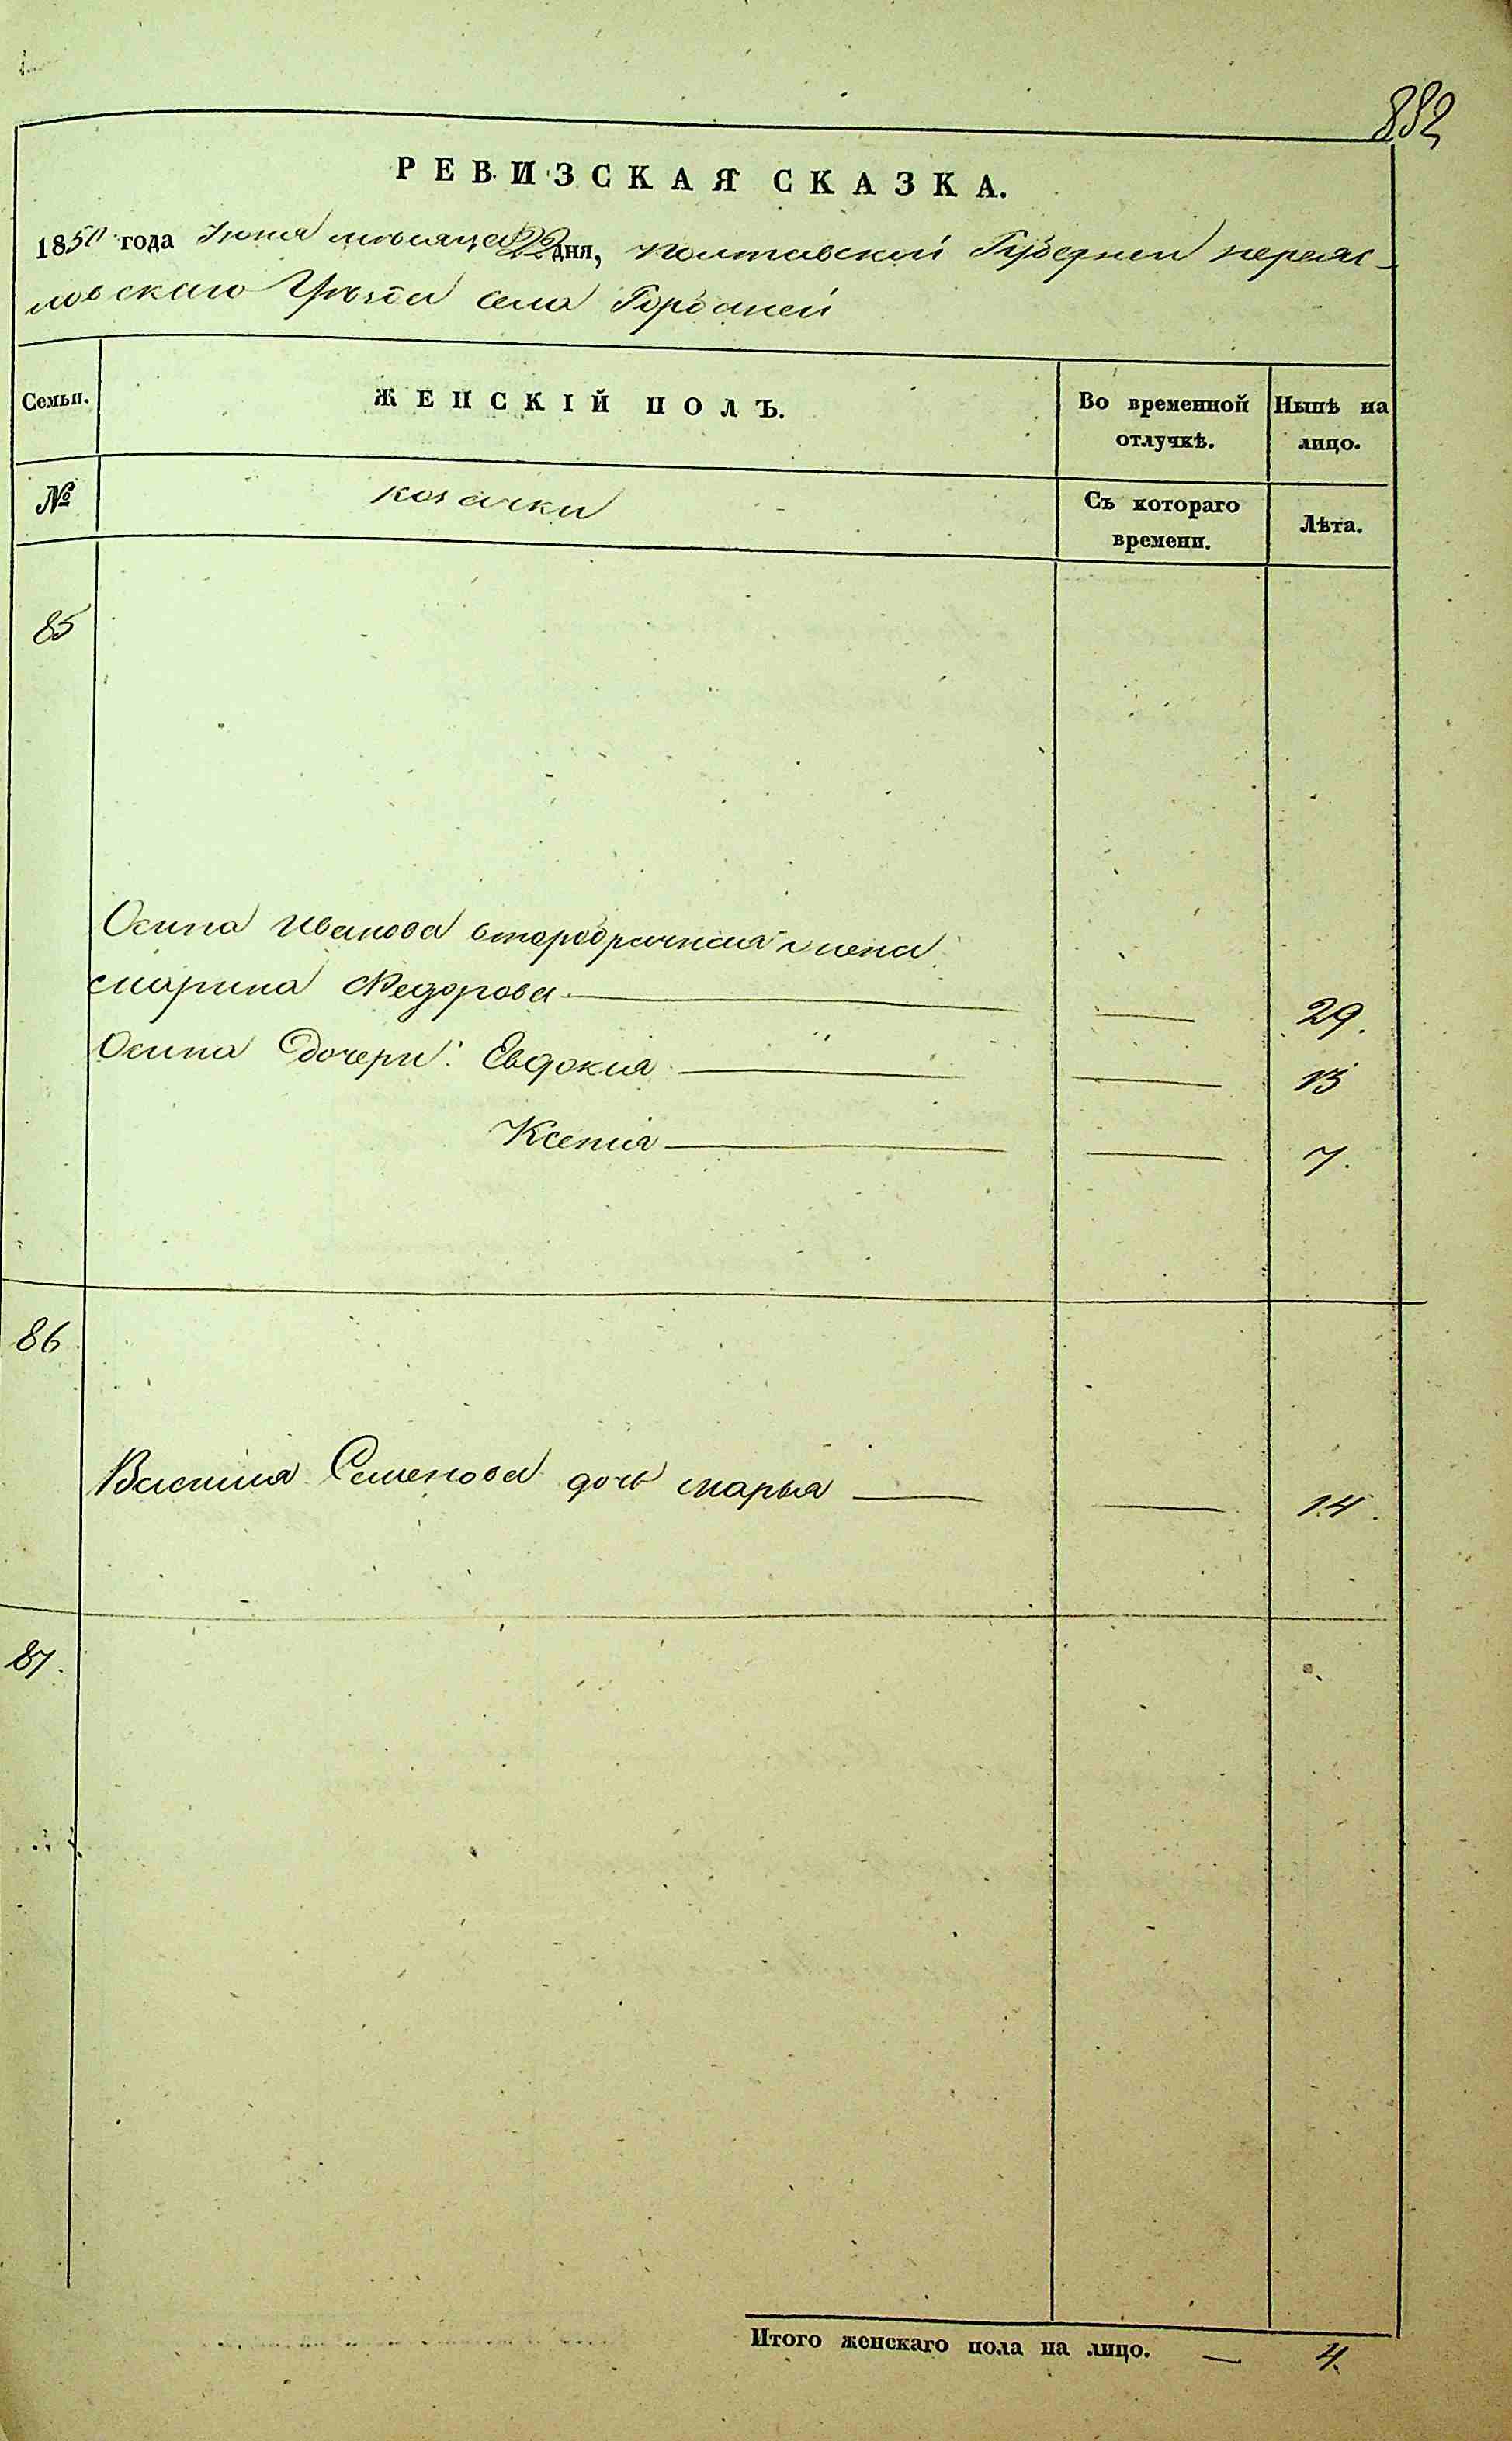 882
РЕВИЗСКАЯ СКАЗКА.
1850 года Июня мѣсяца 22 дня, полтавской Губернии переяс-
ловскаго Уѣзда села
Семьи.
ЖЕНСКІЙ ПОЛЪ.
Во временной отлучкѣ.
Нынѣ на лицо.
№
козачки
Съ котораго времени.
Лѣта.
85
Осипа Иванова второбрачная жена
марина Федорова — — 29.
Осипа Дочери: Евдокия — — 13
Ксенія — — 7.
86
Василия Семенова дочь марья — — 14.
87.
Итого женскаго пола на лицо. — 4.